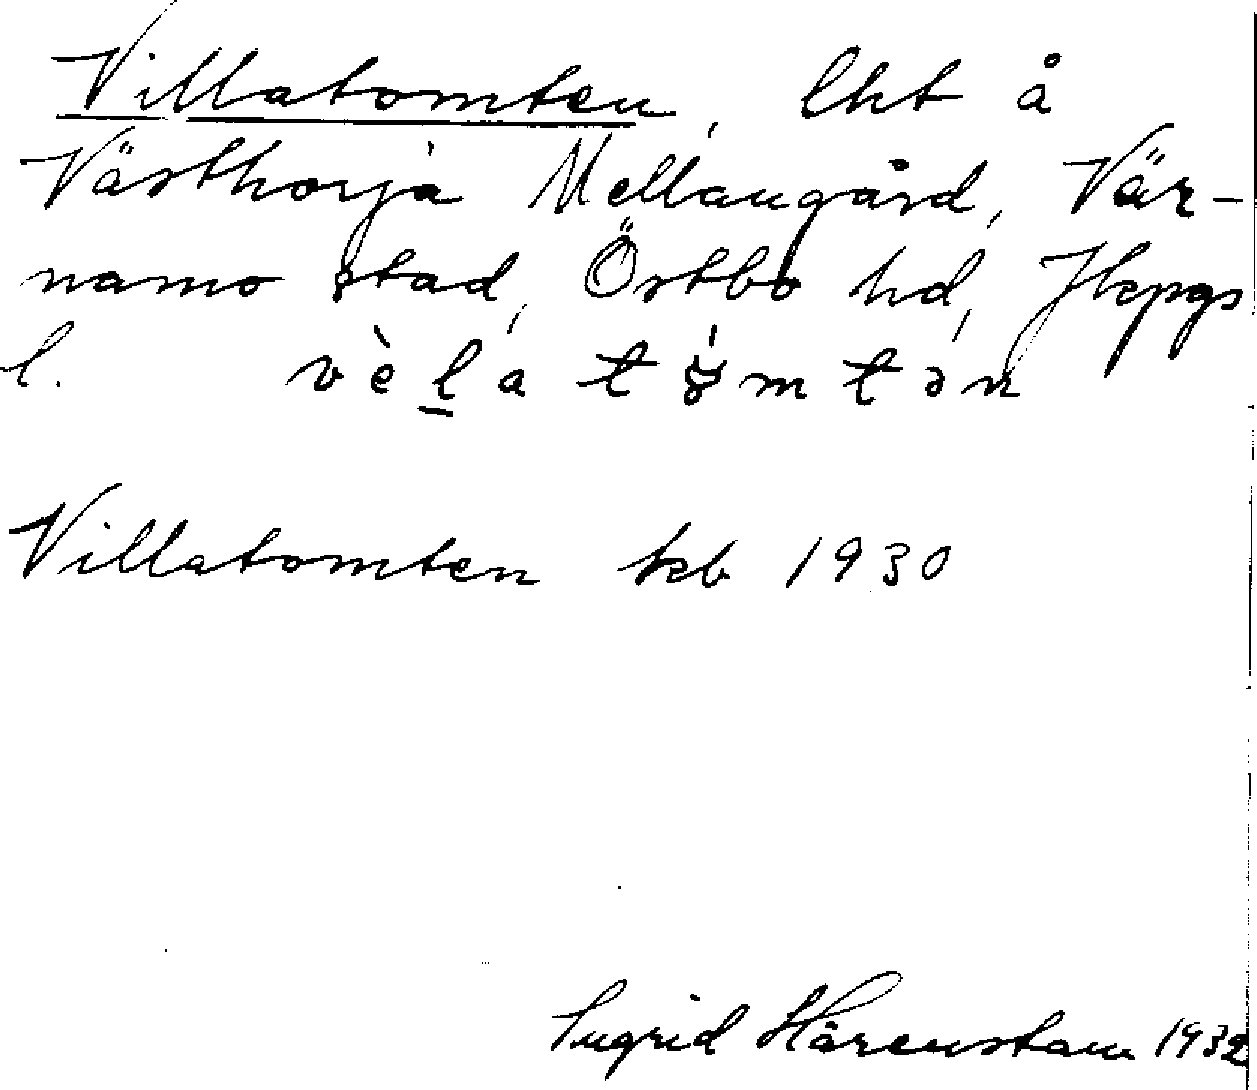 Villatomten, lht å
Västhorja Mellangård, Vär-
namo stad, Östbo hd, Jkpgs
l. vèlatómtən
Villatomten kb 1930
Ingrid Härenstam 1932